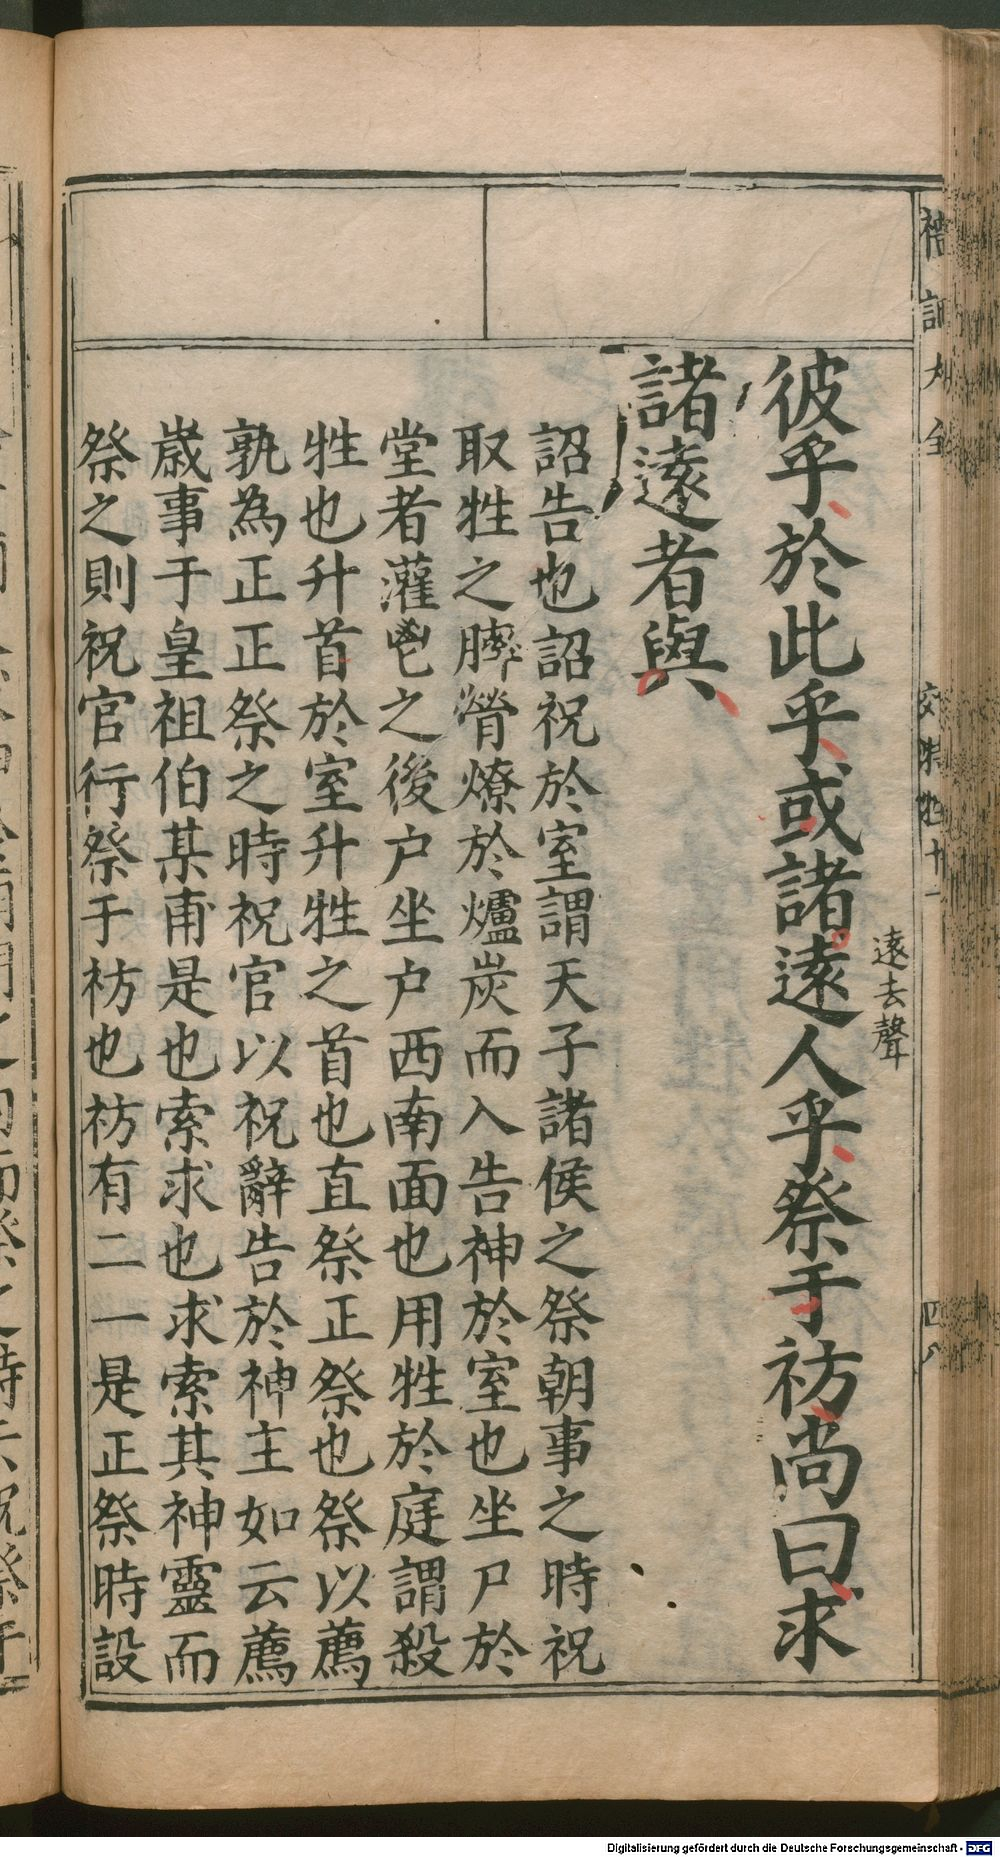 彼乎於此乎或諸遠人乎祭于祊尚曰求
遠去聲
諸遠者與
詔告也詔祝於室謂天子諸侯之祭朝事之時祝
取牲之膟膋燎於爐炭而入告神於室也坐尸於
堂者灌鬯之後户坐户西南面也用牲於庭謂殺
牲也升首於室升牲之首也直祭正祭也祭以薦
孰為正正祭之時祝官以祝辭告於神主如云薦
歲事于皇祖伯某甫是也索求也求索其神靈而
祭之則祝官行祭于祊也祊有二一是正祭時設
Digitalisierung gefördert durch die Deutsche Forschungsgemeinschaft - DFG